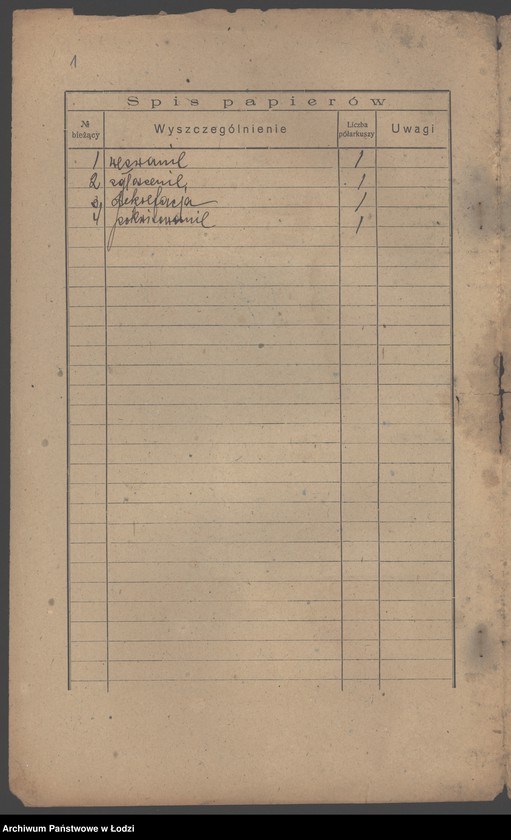 1
Spis papierów
№ bieżący Wyszczególnienie Liczba półarkuszy Uwagi
1 wezwanie 1
2 zgłoszenie, 1
3, dekretacja 1
4 pokwitowanie 1
Archiwum Państwowe w Łodzi